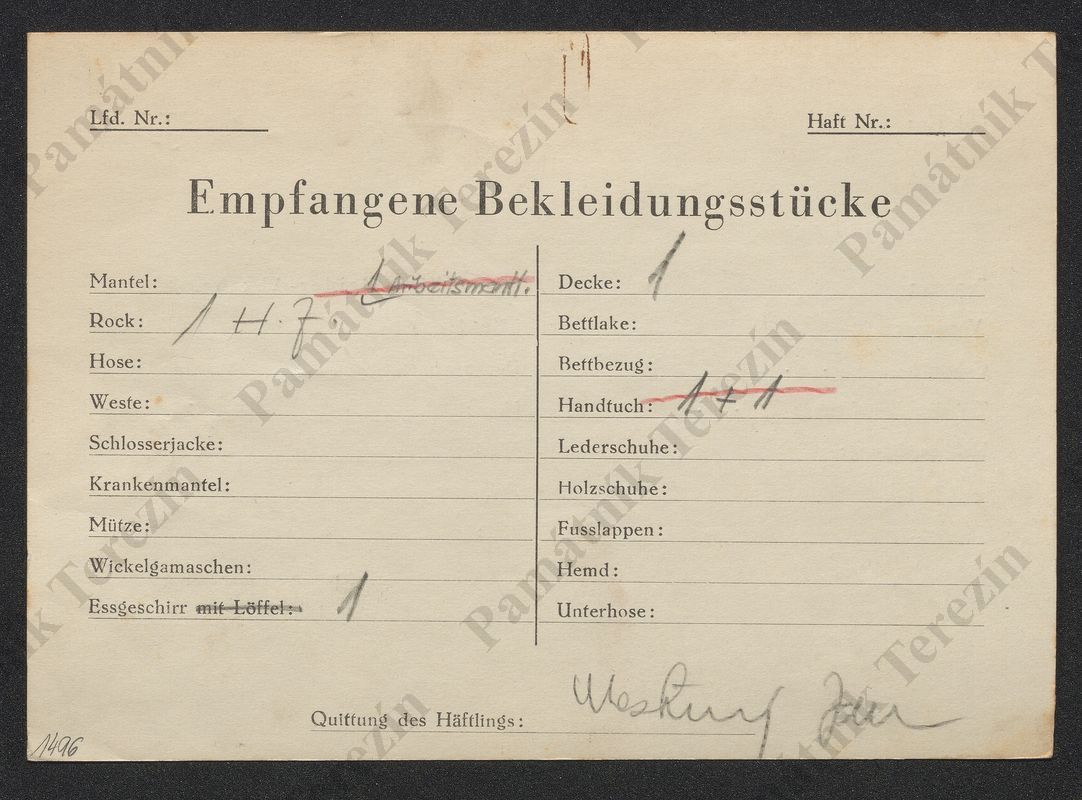 Lfd. Nr.:
Haft Nr.:
Empfangene Bekleidungsstücke
Mantel: 1 Arbeitsmantl.
Rock: 1 H. J.
Hose:
Weste:
Schlosserjacke:
Krankenmantel:
Mütze:
Wickelgamaschen:
Essgeschirr mit Löffel: 1
Decke: 1
Bettlake:
Bettbezug:
Handtuch: 1 + 1
Lederschuhe:
Holzschuhe:
Fusslappen:
Hemd:
Unterhose:
Quittung des Häftlings:
1496
Památník Terezín